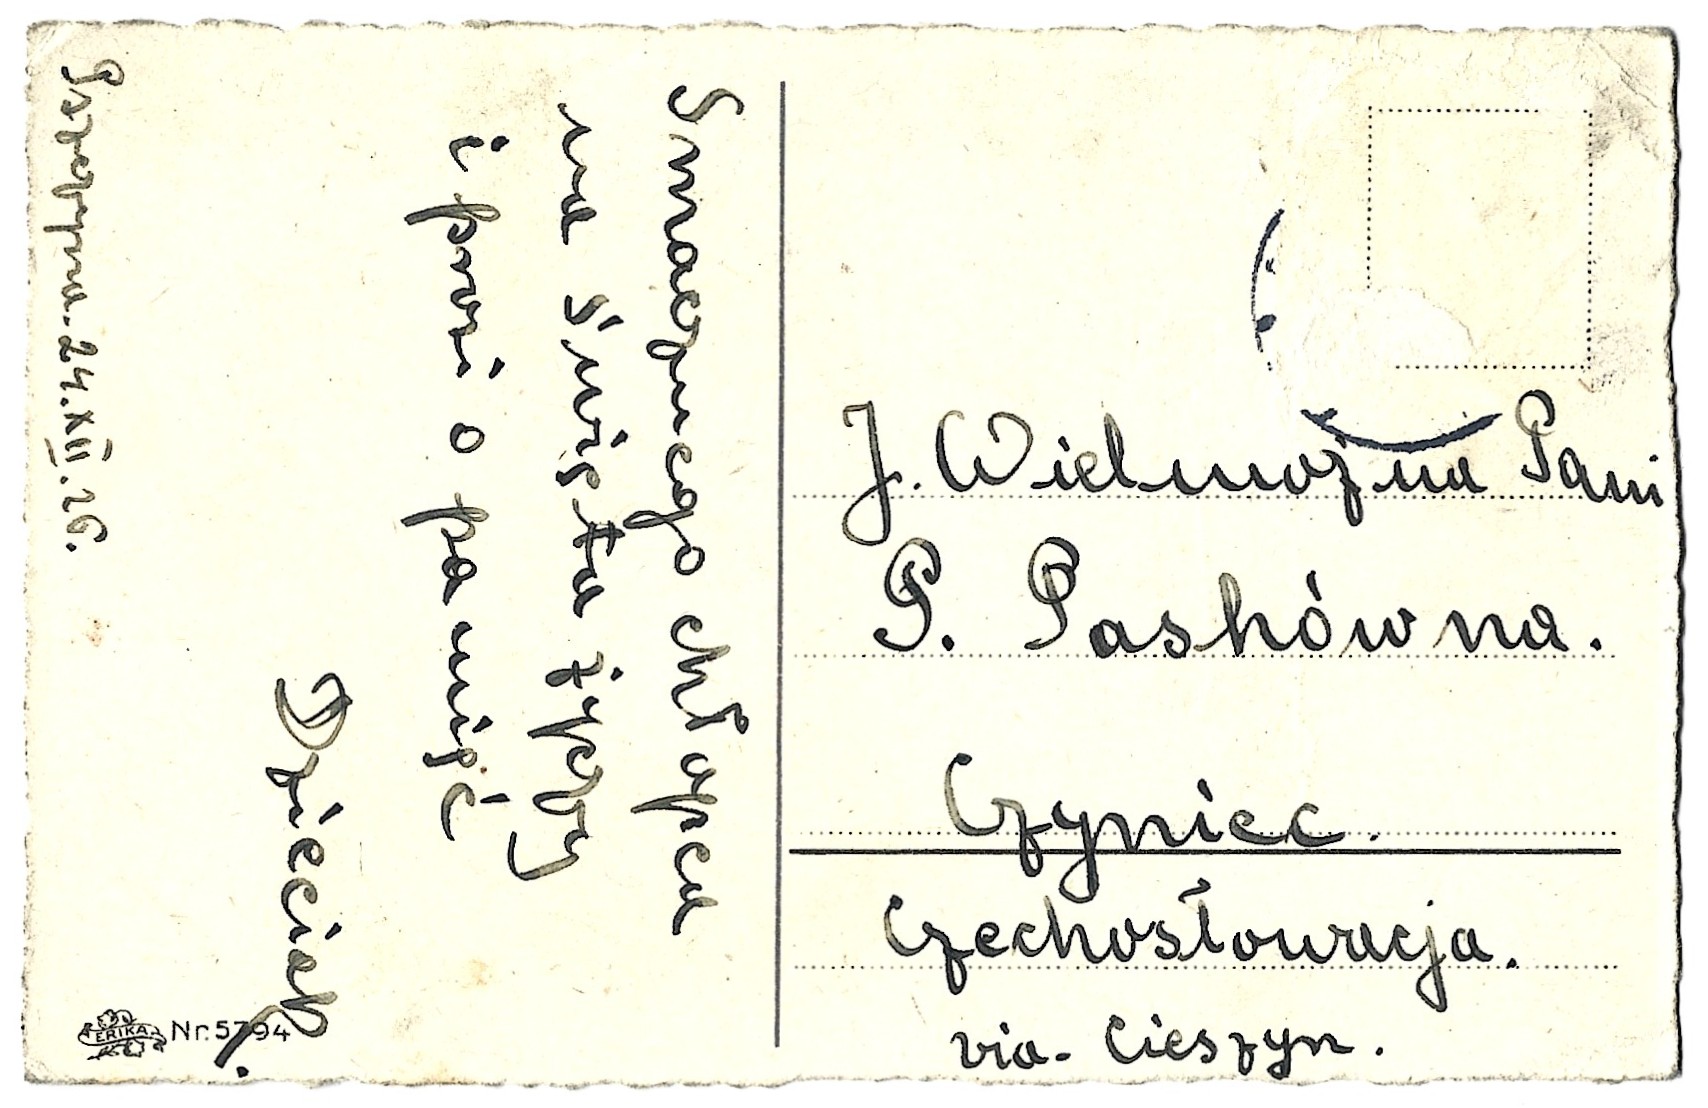 Pszczyna. 24.XII.26.
Smacznego chłopca
na Święta życzy
i prosi o pamięć
Dzieciak.
ERIKA Nr. 5794
J. Wielmożna Pani
P. Paskówna.
Czyniec.
Czechosłowacja.
via - Cieszyn.